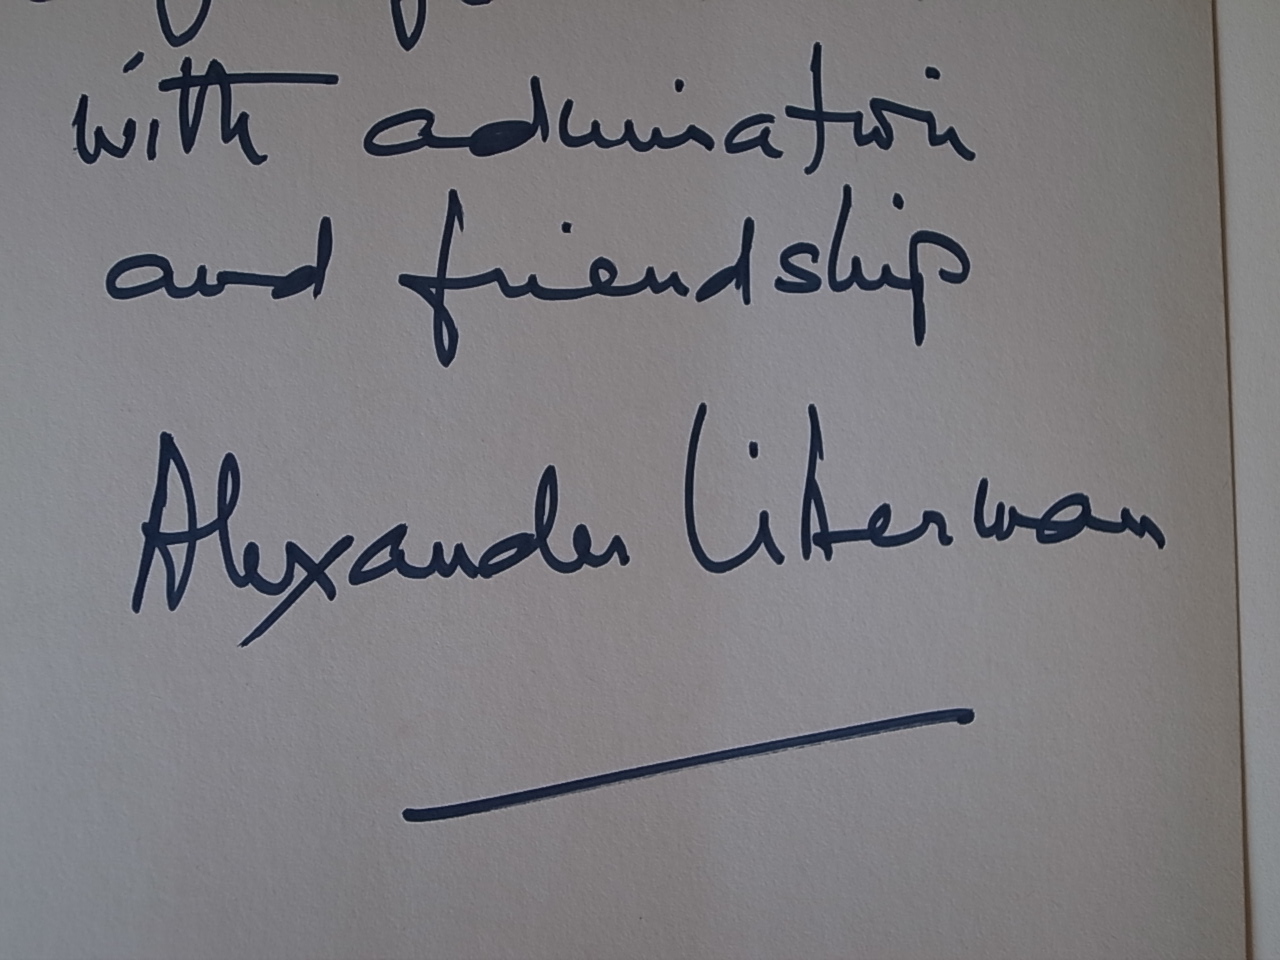 with admiration
and friendship
Alexander Liberman